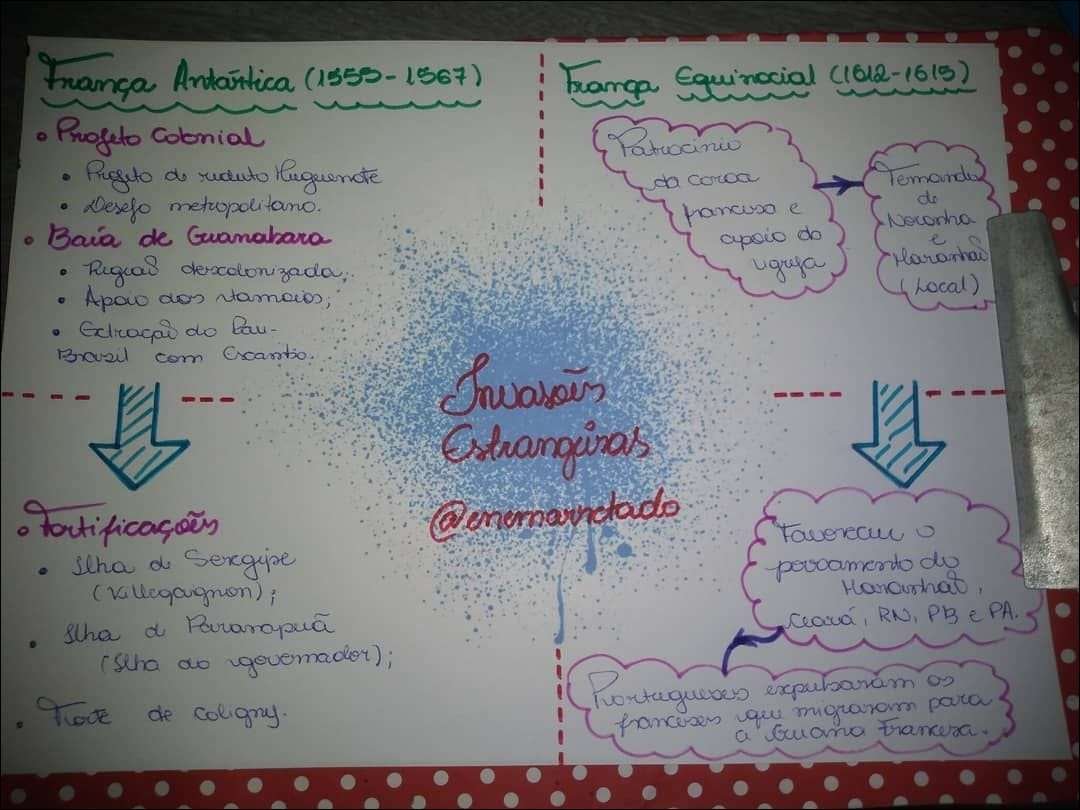 França Antártica (1555-1567)
• Projeto Colonial
• Projeto de reduto Huguenote
• Desejo metropolitano.
• Baía de Guanabara
• Região descolonizada;
• Apoio dos tamoios;
• Extração do Pau-
Brasil com Escambo.
• Fortificações
• Ilha de Sergipe
(Villegaignon);
• Ilha de Paranapuã
(Ilha do governador);
• Forte de coligny.
Invasões
Estrangeiras
@enemarretado
França Equinocial (1612-1615)
Patrocínio
da coroa
francesa e
apoio da
igreja
Fernando
de
Noronha
e
Maranhão
(Local)
Favoreceu o
povoamento do
Maranhão,
Ceará, RN, PB e PA.
Portugueses expulsaram os
franceses que migraram para
a Guiana Francesa.